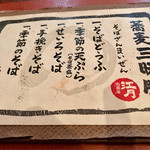 蕎麦三昧
そばざんまいぜん
一、そばとうふ
一、季節の天ぷら
一、せいろそば
一、手挽きそば
一、季節のそば
江月